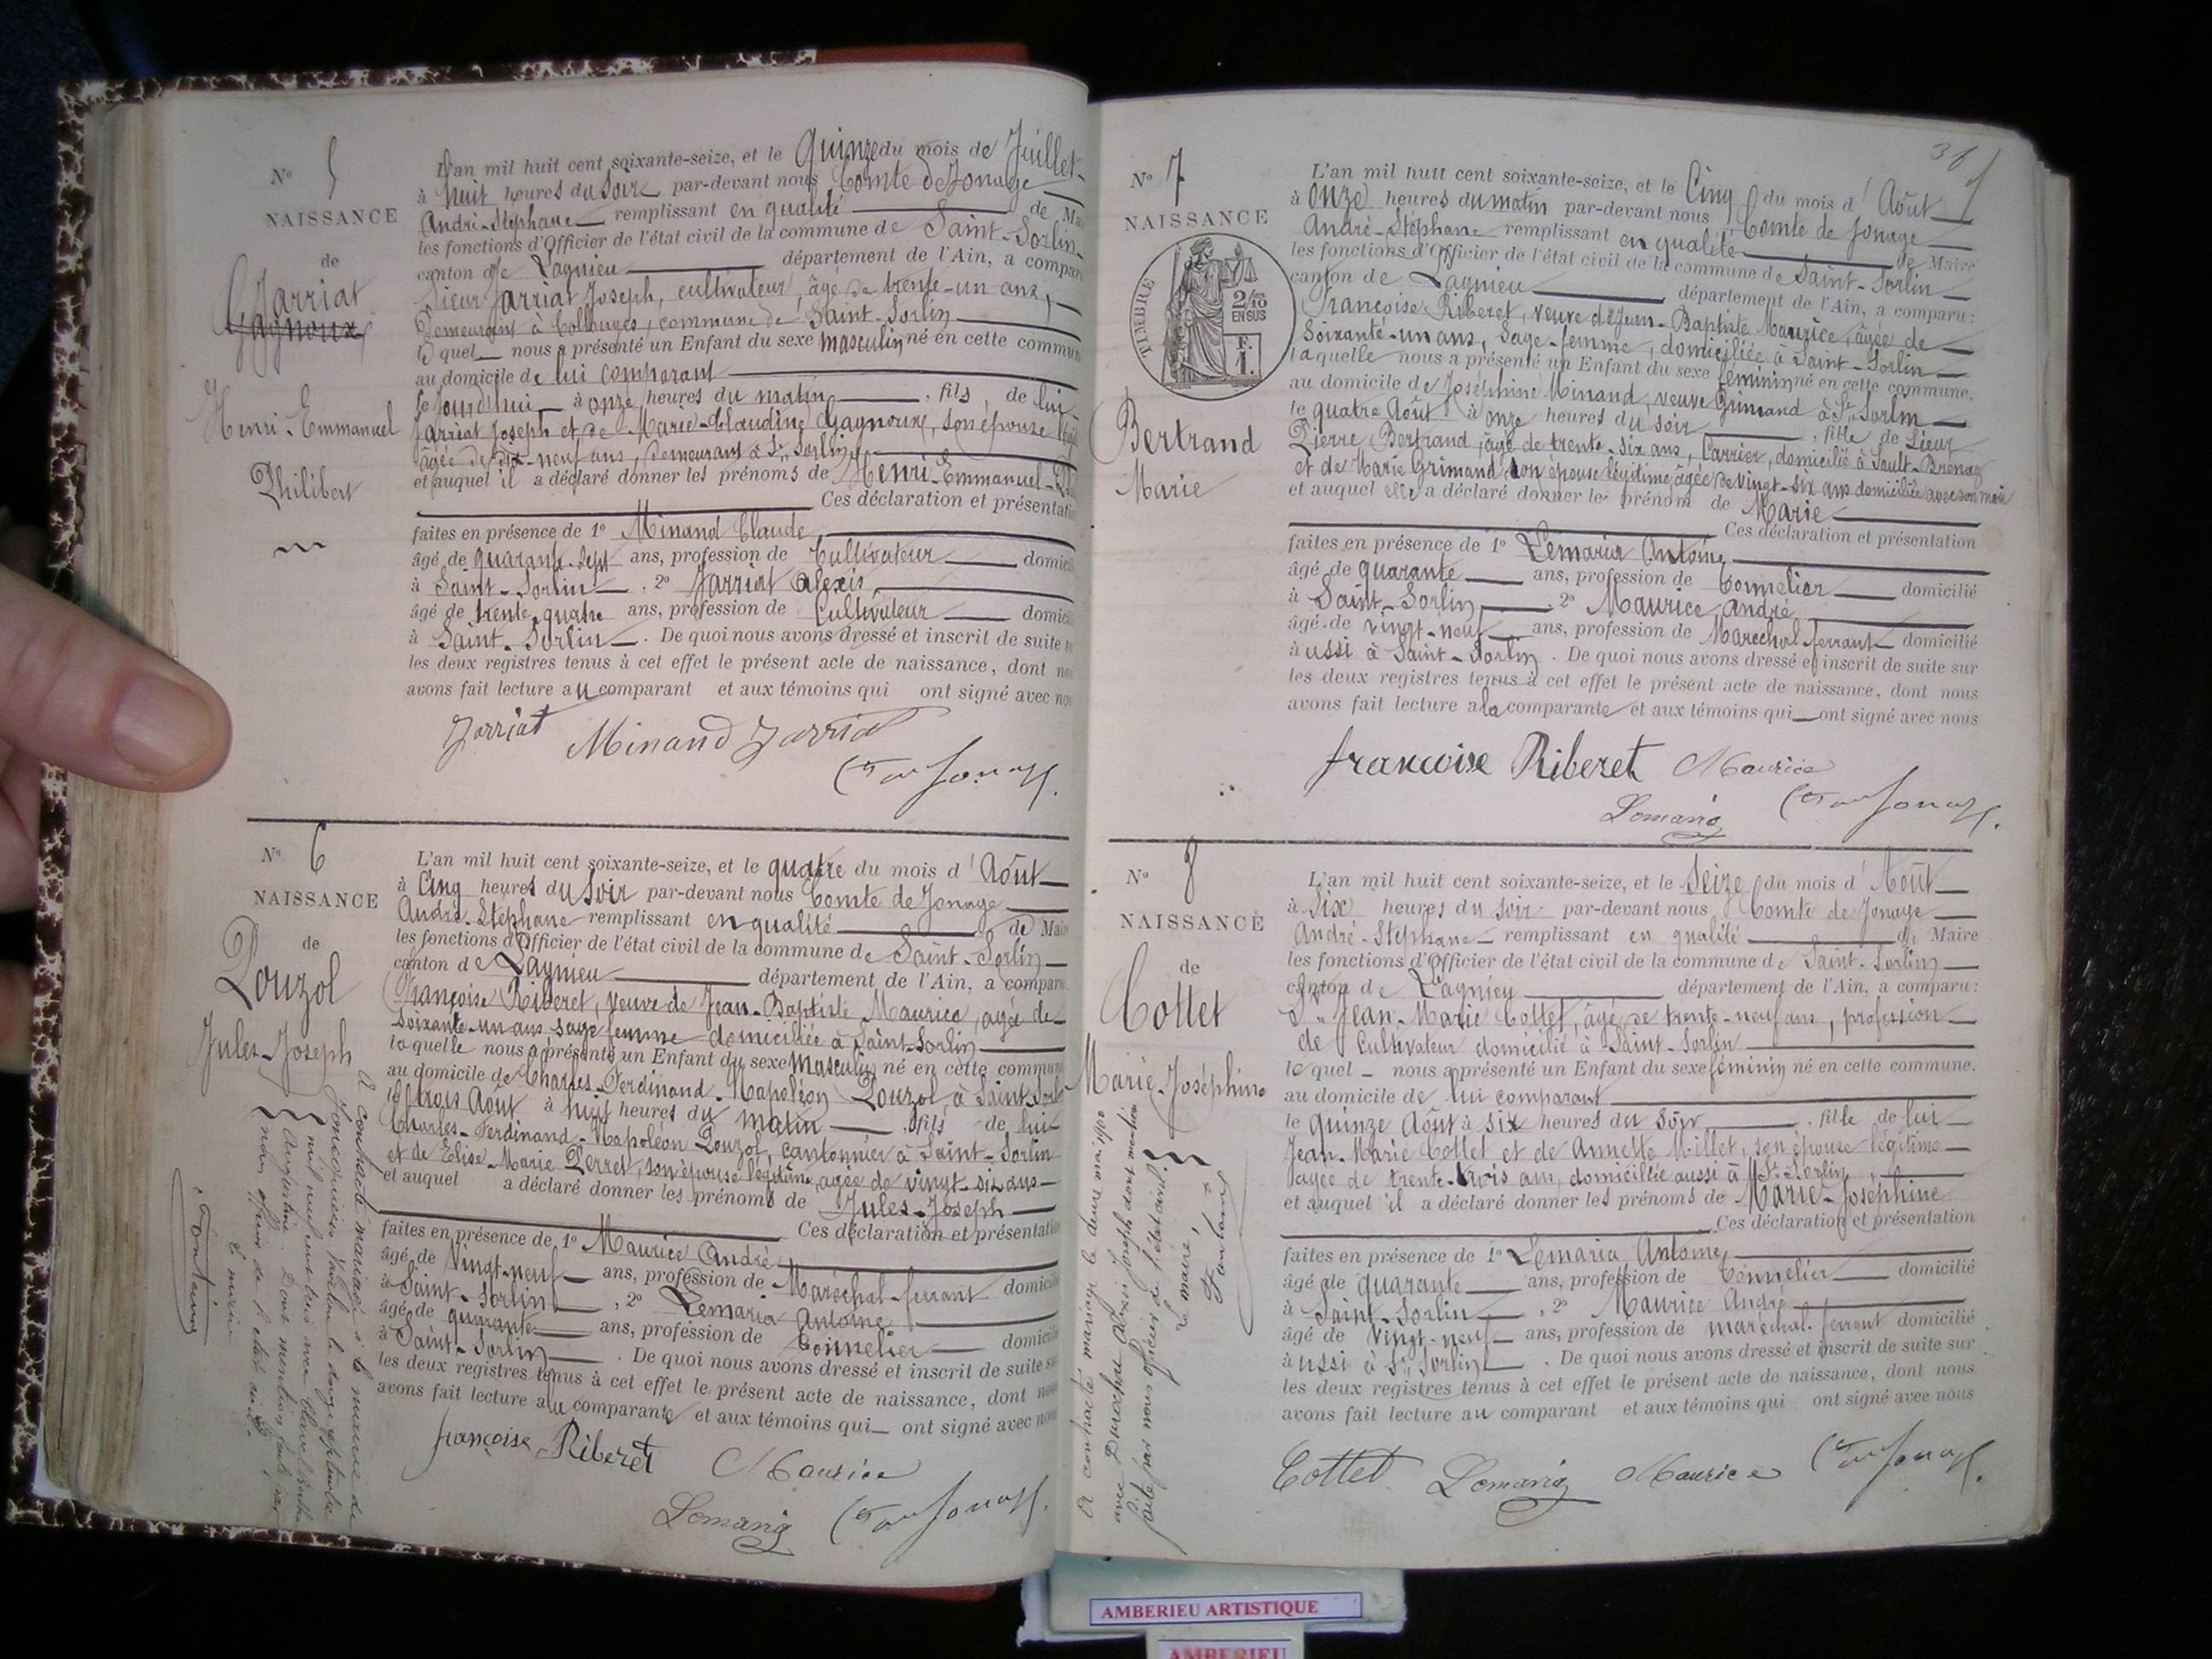 N° 5
NAISSANCE
de
Jarriat
Gagnoux
Henri-Emmanuel
Philibert
L'an mil huit cent soixante-seize, et le Quinze du mois de Juillet
à huit heures du soir par-devant nous Comte de Jonage
André-Stéphane remplissant en qualité de Mai
les fonctions d'Officier de l'état civil de la commune de Saint-Sorlin
canton de Lagnieu département de l'Ain, a compar
Sieur Jarriat Joseph, cultivateur, âgé de trente-un ans,
Demeurant à Collonges, commune de Saint-Sorlin
lequel nous a présenté un Enfant du sexe masculin né en cette commun
au domicile de lui comparant
le jourd'hui à onze heures du matin, fils, de lui
Jarriat Joseph et de Marie-Claudine Gagnoux, son épouse
âgée de dix-neuf ans, demeurant à St Sorlin
et auquel il a déclaré donner les prénoms de Henri-Emmanuel-
Ces déclaration et présentati
faites en présence de 1° Minand Claude
âgé de quarante-sept ans, profession de Cultivateur domici
à Saint-Sorlin, 2° Jarriat Alexis,
âgé de trente-quatre ans, profession de Cultivateur domici
à Saint-Sorlin. De quoi nous avons dressé et inscrit de suite s
les deux registres tenus à cet effet le présent acte de naissance, dont no
avons fait lecture au comparant et aux témoins qui ont signé avec no
Jarriat Minand Jarriat
N° 6
NAISSANCE
de
Pouzol
Jules-Joseph
L'an mil huit cent soixante-seize, et le quatre du mois d'Août
à Cinq heures du soir par-devant nous Comte de Jonage
André-Stéphane remplissant en qualité de Mair
les fonctions d'Officier de l'état civil de la commune de Saint-Sorlin
canton de Lagnieu département de l'Ain, a compar
Françoise Riberet, veuve de Jean-Baptiste Maurice, agée de
soixante-un ans sage femme domiciliée à Saint-Sorlin
laquelle nous a présenté un Enfant du sexe masculin né en cette commun
au domicile de Charles-Ferdinand-Napoléon Pouzol, à Saint-Sorl
le trois Août à huit heures du matin, fils de lui
Charles-Ferdinand-Napoléon Pouzol, cantonnier à Saint-Sorlin
et de Elise-Marie Perret, son épouse légitime, agée de vingt-six ans
et auquel a déclaré donner les prénoms de Jules-Joseph
Ces déclaration et présentatio
faites en présence de 1° Maurice André
âgé de Vingt-neuf ans, profession de Maréchal-ferrant domicili
à Saint-Sorlin, 2° Lemaria Antoine
âgé de quarante ans, profession de Tonnelier domicili
à Saint-Sorlin. De quoi nous avons dressé et inscrit de suite su
les deux registres tenus à cet effet le présent acte de naissance, dont no
avons fait lecture à la comparante et aux témoins qui ont signé avec no
françoise Riberet Maurice
Lemaria
A contracté mariage à la mairie de
le douze septembre
mil neuf cent trois avec
Augustine. Dont mention faite par
nous officier de l'état civil.
Le maire
Fontaine
N° 7
NAISSANCE
TIMBRE
2/10
EN SUS
F.
1.
Bertrand
Marie
L'an mil huit cent soixante-seize, et le Cinq du mois d'Août
à onze heures du matin par-devant nous Comte de Jonage
André-Stéphane remplissant en qualité de Maire
les fonctions d'Officier de l'état civil de la commune de Saint-Sorlin
canton de Lagnieu département de l'Ain, a comparu:
Françoise Riberet, veuve de Jean-Baptiste Maurice, âgée de
Soixante-un ans, Sage-femme, domiciliée à Saint-Sorlin
laquelle nous a présenté un Enfant du sexe féminin né en cette commune.
au domicile de Joséphine Minand, veuve Grimand à St Sorlin
le quatre Août à onze heures du soir, fille de Sieur
Pierre Bertrand, âgé de trente-six ans, Carrier, domicilié à Sault-Brenaz
et de Marie Grimand son épouse légitime, âgée de vingt-six ans domiciliée avec son mari
et auquel elle a déclaré donner le prénom de Marie
Ces déclaration et présentation
faites en présence de 1° Lemaria Antoine
âgé de quarante ans, profession de Tonnelier domicilié
à Saint-Sorlin, 2° Maurice André
âgé de vingt-neuf ans, profession de Maréchal-ferrant domicilié
aussi à Saint-Sorlin. De quoi nous avons dressé et inscrit de suite sur
les deux registres tenus à cet effet le présent acte de naissance, dont nous
avons fait lecture à la comparante et aux témoins qui ont signé avec nous
françoise Riberet Maurice
Lemaria
N° 8
NAISSANCE
de
Cottet
Marie-Joséphine
L'an mil huit cent soixante-seize, et le Seize du mois d'Août
à Six heures du soir par-devant nous Comte de Jonage
André-Stéphane remplissant en qualité de Maire
les fonctions d'Officier de l'état civil de la commune de Saint-Sorlin
canton de Lagnieu département de l'Ain, a comparu:
Sr Jean-Marie Cottet, âgé de trente-neuf ans, profession
de Cultivateur domicilié à Saint-Sorlin
lequel nous a présenté un Enfant du sexe féminin né en cette commune.
au domicile de lui comparant
le quinze Août à six heures du soir, fille de lui
Jean-Marie Cottet et de Annette Millet, son épouse légitime
agée de trente-trois ans, domiciliée aussi à St Sorlin
et auquel il a déclaré donner les prénoms de Marie-Joséphine
Ces déclaration et présentation
faites en présence de 1° Lemaria Antoine
âgé de quarante ans, profession de Tonnelier domicilié
à Saint-Sorlin, 2° Maurice André
âgé de Vingt-neuf ans, profession de maréchal-ferrant domicilié
aussi à St Sorlin. De quoi nous avons dressé et inscrit de suite sur
les deux registres tenus à cet effet le présent acte de naissance, dont nous
avons fait lecture au comparant et aux témoins qui ont signé avec nous
Cottet Lemaria Maurice
A contracté mariage le deux mai 1900
avec Durochat Alexis Joseph dont mention
faite par nous officier de l'état civil.
Le maire,
Fontaine
AMBERIEU ARTISTIQUE
AMBERIEU